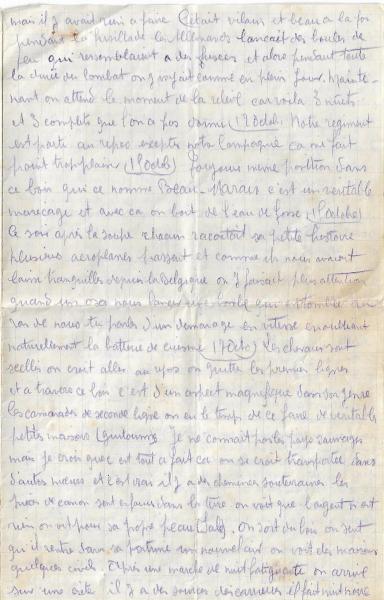 mais il y avait rien a faire C'était vilain et beau a la fois
pendant la fusillade les Allemands lancait des boules de
feu qui ressemblaient a des fusees et alors pendant toute
la durée du combat on y voyait comme en plein jour. Mainte-
nant on attend le moment de la relève car voila 3 nuits
et 3 complets que l'on a pas dormi (12 Octob) Notre regiment
est parti au repos exceptes notre Compagnie ca me fait
point trop plaisir (19 Octob) Toujours meme position dans
ce bois qui ce nomme Beau-Marais c'est un veritable
marecage et avec ca on boit de l'eau de fosse (Octobre)
Ce soir après la soupe chacun racontait sa petite histoire
plusieurs aeroplanes passant et comme ils nous avaient
laisse tranquilles depuis la Belgique on y faisait plus attention
quand un osa nous lancer une bombe qui est tombe
de nous tu parles d'un demenage en vitesse en oubliant
naturellement la batterie de cuisine (17 Oct) Les chevaux sont
sellés on croit aller au repos on quitte les premier lignes
et a travers ce bois c'est d'un aspect magnefique dans son genre
les camarades de seconde ligne on eu le temp de ce faire de veritables
petites maisons Je ne connait pas les pays sauvages
mais je crois que c'est tout a fait ca on se croit transportes dans
d'autres et c'est vrai il y a des chemins souterraines les
pieces de canon sont enfouies dans la terre on voit que l'argent n'est
rien on vit pour sa propre peau On sort du bois on sent
qu'il rentre dans sa poitrine un nouvel air on voit des maisons
quelques civils. Après une marche de nuit fatiguante on arrive
sur une côte il y a des sources des carrieres il fait nuit noire